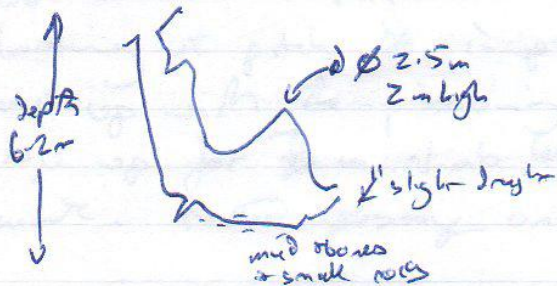 depth
6.2m
Ø 2.5m
2m high
"slight draught
mud + bones
+ small rocks